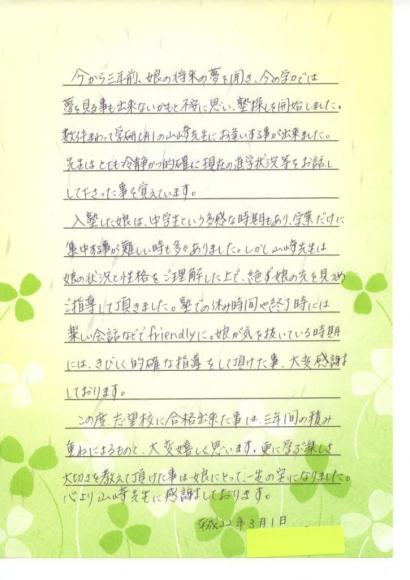 今から三年前、娘の将来の夢を聞き、今の学力では
夢を見る事も出来ないかもと不安に思い、塾探しを開始しました。
数件まわって学研CAIの山﨑先生にお会いする事が出来ました。
先生はとても冷静かつ的確に現在の進学状況等をお話
して下さった事を覚えています。
入塾した娘は、中学生という多感な時期もあり、学業だけに
集中する事が難しい時も多々ありました。しかし山﨑先生は
娘の状況と性格をご理解した上で、絶えず娘の先を見つめ
ご指導して頂きました。塾での休み時間や終了時には
楽しい会話などでfriendlyに。娘が気を抜いている時期
には、きびしく的確な指導をして頂けた事、大変感謝
しております。
この度、志望校に合格出来た事は、三年間の積み
重ねによるもので、大変嬉しく思います。更に学ぶ楽しさ
大切さを教えて頂けた事は娘にとって、一生の宝になりました。
心より山﨑先生に感謝しております。
平成22年3月1日